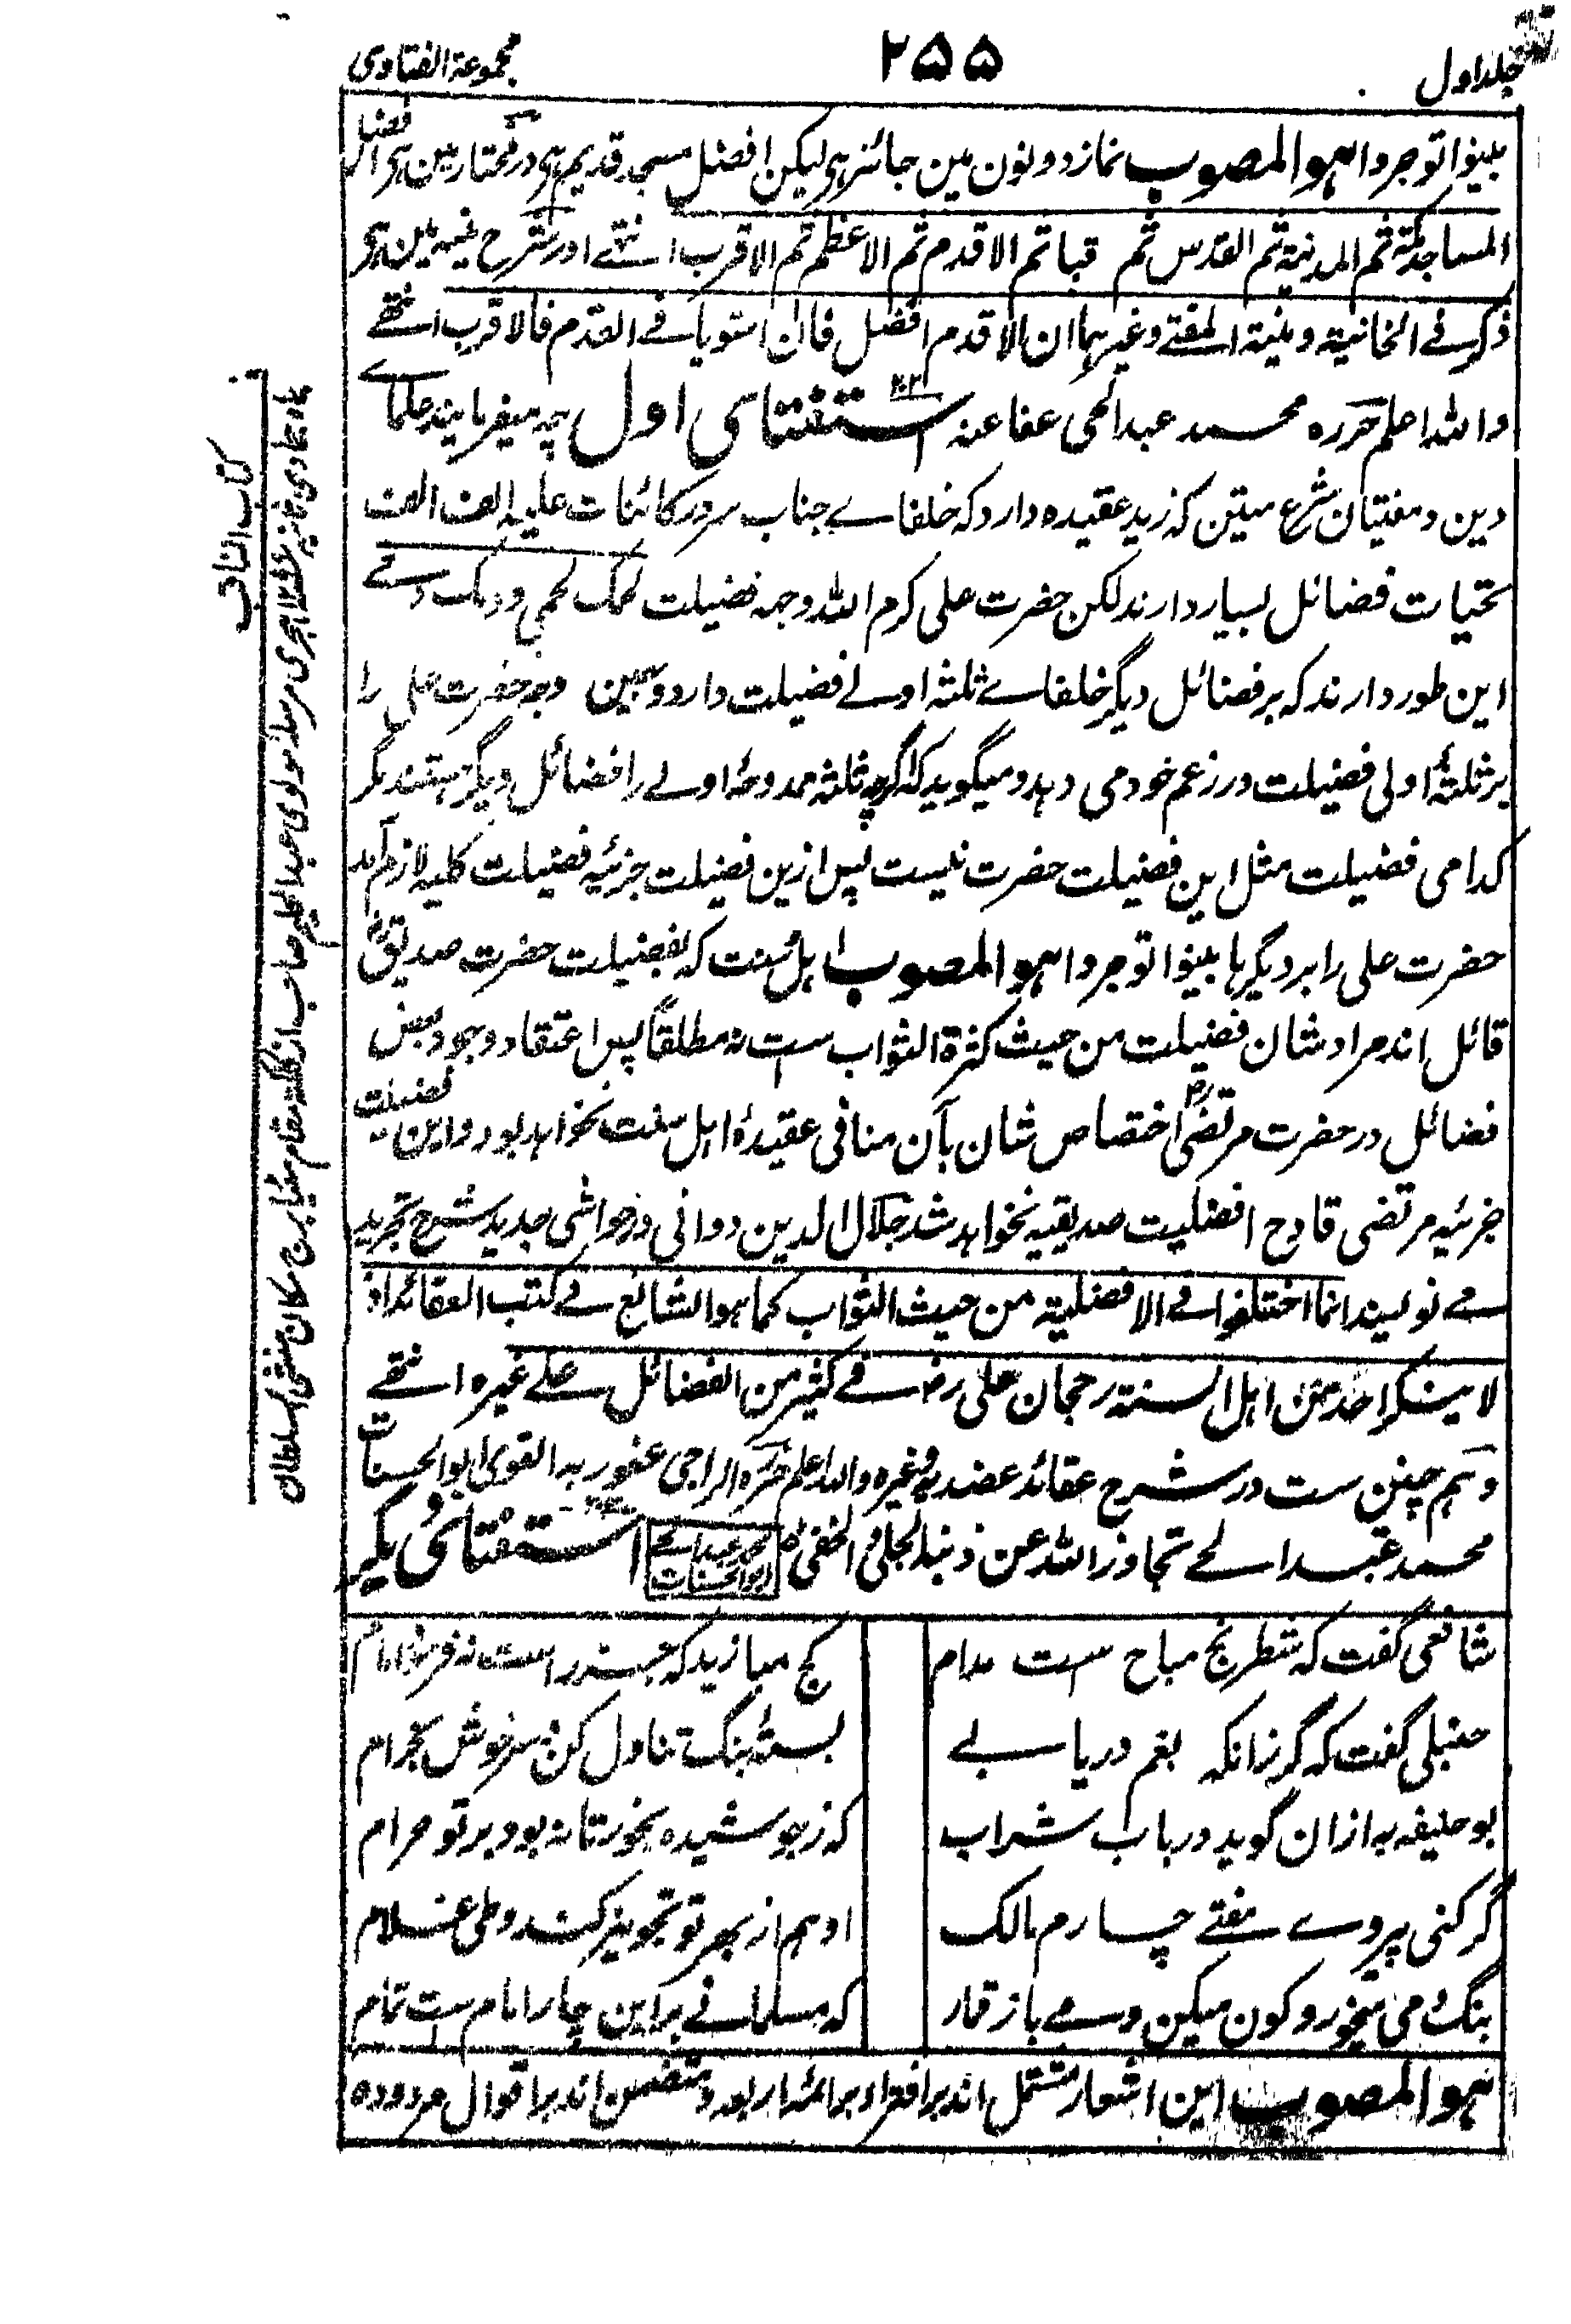 جلد اول
۲۵۵
مجموعة الفتاوی
بینوا توجروا ہو المصوب نماز دونون مین جائز ہی لیکن افضل مسجد قدیم ہی در مختار مین ہی افضل
المساجد مکة ثم المدینة ثم القدس ثم قبا ثم الاقدم ثم الاعظم ثم الاقرب انتہے اور شرح منیہ مین ہی
ذکر فے الخانیة و منیة المفتے وغیرہما ان الاقدم افضل فان استویا فے القدم فالاقرب انتھے
واللہ اعلم حررہ محمد عبدالحی عفا عنہ استفتای اول چہ میفرمایند علماے
دین و مفتیان شرع متین کہ زید عقیدہ دارد کہ خلفاے جناب سرور کائنات علیہ الف الف
تحیات فضائل بسیار دارند لکن حضرت علی کرم اللہ وجہہ فضیلت لحمک لحمی و دمک دمے
این طور دارند کہ بر فضائل دیگر خلفاے ثلثہ اولے فضیلت دارد و بہمین وجہ حضرت علی را
بر ثلثہ اولی فضیلت در زعم خود می دہد و میگوید کہ اگرچہ ثلثہ ممدوحہ اولے را فضائل دیگر ہستند مگر
کدامی فضیلت مثل این فضیلت حضرت نیست پس ازین فضیلت جزئیہ فضیلت کلیہ لازم آمد
حضرت علی را بر دیگرہا بینوا توجروا ہو المصوب اہل سنت کہ بفضیلت حضرت صدیقؓ
قائل اند مراد شان فضیلت من حیث کثرة الثواب ست نہ مطلقاً پس اعتقاد وجود بعض
فضائل در حضرت مرتضیؓ اختصاص شان بآن منافی عقیدۂ اہل سنت نخواہد بود و این فضیلت
جزئیہ مرتضی قادح افضلیت صدیقیہ نخواہد شد جلال الدین دوانی در حواشی جدید شرح تجرید
مے نویسد انما اختلفوا فے الافضلیة من حیث الثواب کما ہو الشائع فے کتب العقائد اذ
لا ینکر احد من اہل السنة رجحان علی رض فے کثیر من الفضائل علے غیرہ انتھے
و ہم چنین ست در شرح عقائد عضدیہ وغیرہ واللہ اعلم حررہ الراجی عفو ربہ القوی ابوالحسنات
محمد عبد الحے تجاوز اللہ عن ذنبہ الجلی والخفی محمد عبدالحے ابوالحسنات استفتائی دیگر
شافعی گفت کہ شطرنج مباح ست مدام
کج مبازید کہ جز راست نفرمود امام
حنبلی گفت کہ گر زانکہ بغم در یابے
بستۂ بنگ تناول کن سرخوش بخرام
بو حنیفہ بہ ازان گوید در باب شراب
کہ ز جوشیدہ بخور تا نہ بود بر تو حرام
گر کنی پیروے مفتے چہارم مالک
او ہم از بہر تو تجویز کند وطی غلام
بنگ و می میخور و کون میکن و مے باز قمار
کہ مسلمانے بر این چار امام ست تمام
ہو المصوب این اشعار مشتمل اند بر افترا بر ائمہ اربعہ و متضمن اند بر اقوال مردودہ
ہجری مرسلہ مولوی عبدالحلیم صاحب از کلکتہ مقام مٹیا برج مکان منشی السلطان